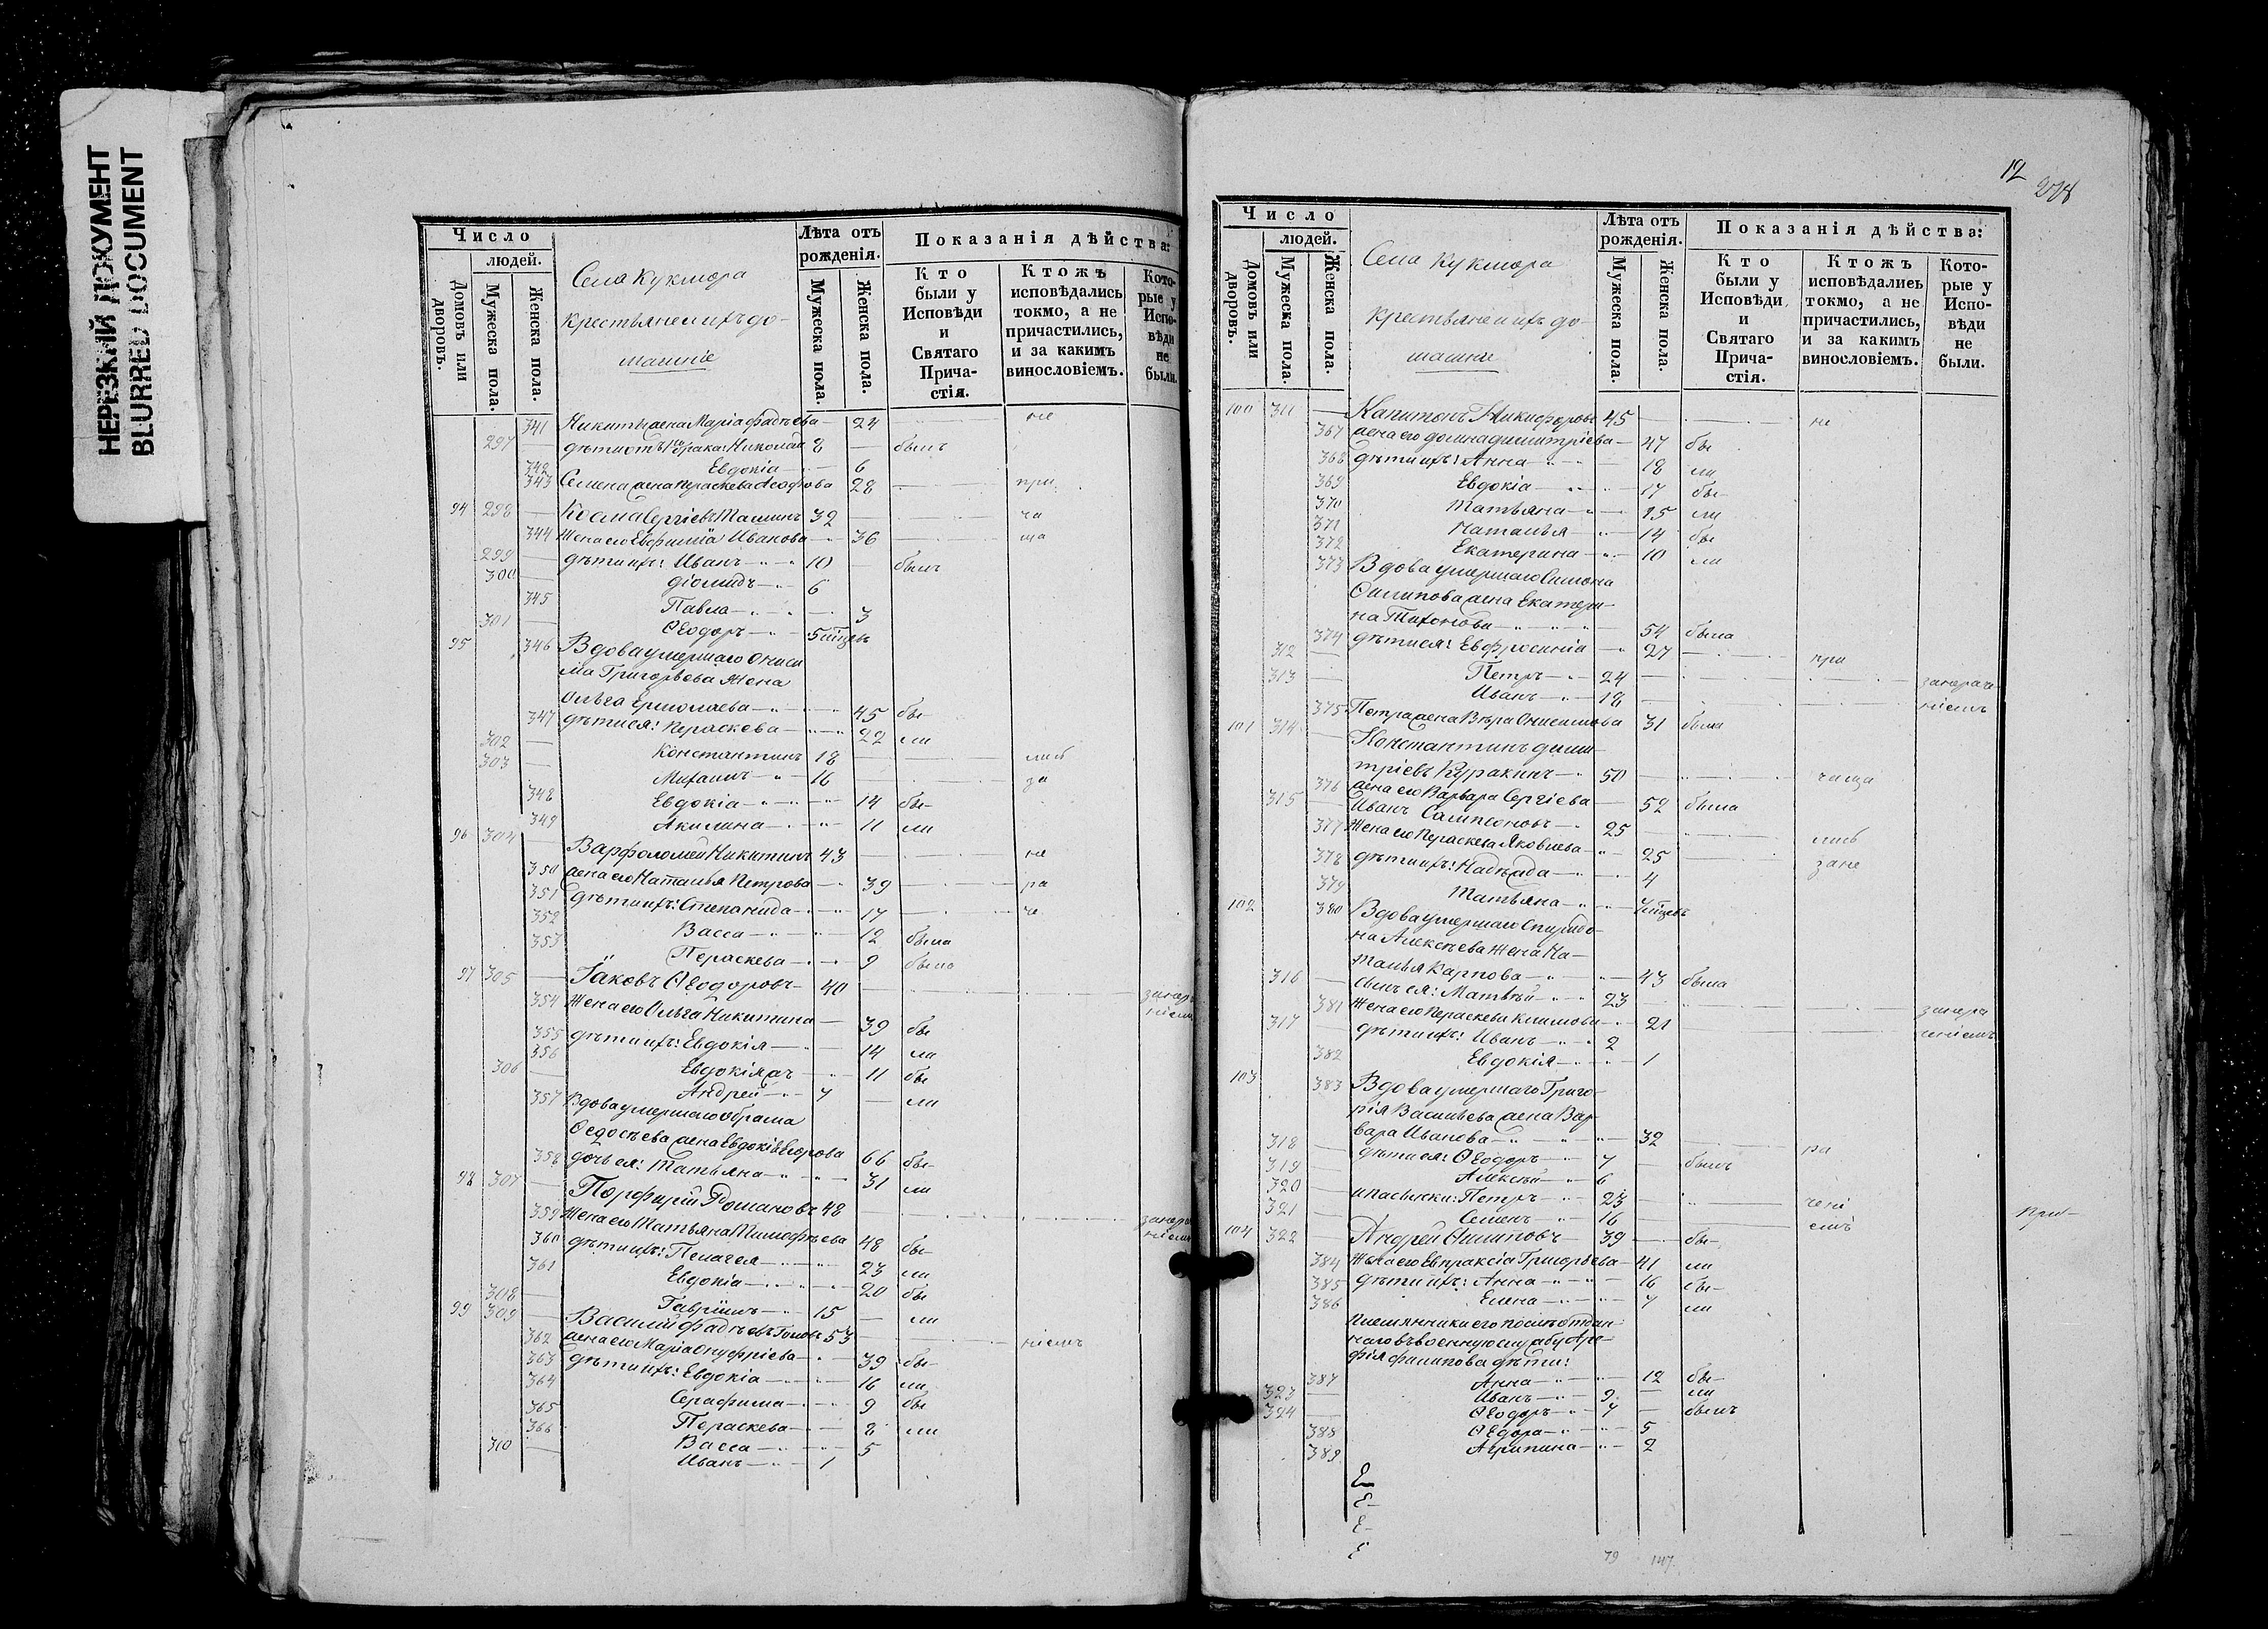 НЕРЕЗКИЙ ДОКУМЕНТ
BLURRED DOCUMENT
Число
людей.
Домовъ или дворовъ.
Мужеска пола.
Женска пола.
Села Кукмора
крестьяне и ихъ до-
машніе
Лѣта отъ рожденія.
Мужеска пола.
Женска пола.
Показанія дѣйства:
Кто были у Исповѣди и Святаго Прича-стія.
Ктожъ исповѣдались токмо, а не причастились, и за какимъ винословіемъ.
Кото-рые у Испо-вѣди не были.
341 Никиты жена Марія Фадѣева — 24 не
297 — дѣти отъ 1го брака: Николай 8 — былъ
342 Евдокія — 6
343 Семена жена Параскева 28 при
94 298 — Косма Сергіевъ 32 ча
344 Жена его Евфимія Иванова — 36 ща
299 — дѣти ихъ: Иванъ 10 былъ
300 — Діомидъ 6
345 Павла — 3
301 — Ѳеодоръ 5 мѣцъ
95 346 Вдова умершаго Ониси
ма Григорьева жена
Ольга Ермолаева — 45 бы-
347 дѣти ея: Параскева — 22 ли
302 — Константинъ 18 лись
303 — Михаилъ 16 за
348 Евдокія — 14 бы-
349 Акилина — 11 ли
96 304 — Варфоломей Никитинъ 43 не
350 жена его Наталья Петрова — 39 ра
351 дѣти ихъ: Степанида — 17 че
352 Васса — 12 была
353 Параскева — 9 была
97 305 — Іаковъ Ѳеодоровъ 40
354 Жена его Ольга Никитина — 39 бы
355 дѣти ихъ: Евдокія — 14 ли
356 Евдокія — 11 бы
306 — Андрей 7 — ли
357 Вдова умершаго Абрама
Ѳедосѣева жена Евдокія Егорова 66 бы-
358 дочь ея: Татьяна — 31 ли
98 307 — Порфирій Романовъ 48
359 Жена его Татьяна Тимофѣева 48 бы
360 дѣти ихъ: Пелагея — 23 ли
361 Евдокія — 20 бы
308 — Гавріилъ 15 — ли
99 309 — Василій Фадѣевъ 53 ніемъ
362 жена его Марія Онуфріева — 39 бы-
363 дѣти ихъ: Евдокія — 16 ли
364 Серафима — 9 бы
365 Параскева — 8 ли
366 Васса — 5
310 — Иванъ 1
12
278
Число
людей.
Домовъ или дворовъ.
Мужеска пола.
Женска пола.
Села Кукмора
крестьяне и ихъ до-
машніе
Лѣта отъ рожденія.
Мужеска пола.
Женска пола.
Показанія дѣйства:
Кто были у Исповѣди и Святаго Прича-стія.
Ктожъ исповѣдались токмо, а не причастились, и за какимъ винословіемъ.
Кото-рые у Испо-вѣди не были.
100 311 — Капитонъ Никифоровъ 45 не
367 жена его Домна Димитріева — 47 бы
368 дѣти ихъ: Анна — 18 ли
369 Евдокія — 17 бы-
370 Татьяна — 15 ли
371 Наталья — 14 бы
372 Екатерина — 10 ли
373 Вдова умершаго Симона
Филипова жена Екатери-
на Тихонова — 54 была
374 дѣти ея: Евфросинія — 27 при
312 — Петръ 24 занераче
313 — Иванъ 18 ніемъ
375 Петра жена Вѣра Онисимова 31 была
101 314 — Константинъ Дими-
тріевъ Куракинъ 50 чаща
376 жена его Варвара Сергіева — 52 была
315 — Иванъ Сампсоновъ 25 лись
377 Жена его Параскева Яковлева — 25 зане
378 дѣти ихъ: Надежда — 4
379 Татьяна — 7 мѣцевъ
102 380 Вдова умершаго Спиридо-
на Алексѣева жена На-
талья Карпова — 43 была
316 — сынъ ея: Матвѣй 23 занера
381 Жена его Параскева Климова — 21 ченіемъ
317 — дѣти ихъ: Иванъ 2
382 Евдокія — 1
103 383 Вдова умершаго Григо-
рія Васильева жена Вар-
вара Иванова — 32 ра
318 — дѣти ея: Ѳеодоръ 7 — былъ
319 — Алексѣй 6
320 — и пасынки: Петръ 23 чені
321 — Семенъ 16 емъ
104 322 — Андрей Филиповъ 39 — бы-
384 Жена его Евпраксія Григорьева — 41 ли
385 дѣти ихъ: Анна — 16 бы-
386 Елена — 7 ли
Племянники его послѣ отдан-
наго въ военную службу Аре-
фія Филипова дѣти:
387 Анна — 12 бы-
323 — Иванъ 9 — ли
324 — Ѳеодоръ 7 — былъ
388 Ѳедора — 5
389 Агрипина — 2
при-
79 147